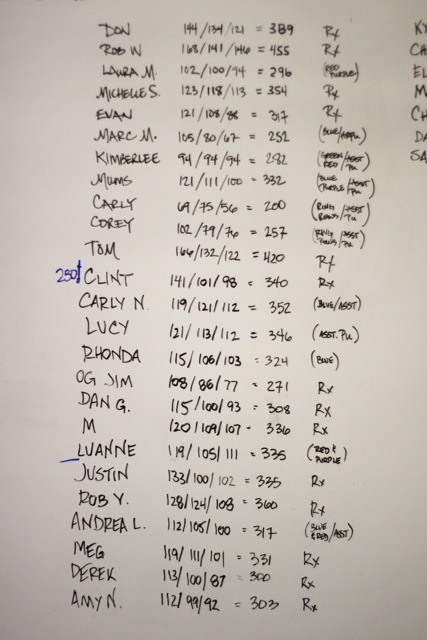 DON 144/134/121 = 389 Rx
ROB W 168/141/146 = 455 Rx
LAURA M. 102/100/94 = 296 (RED PURPLE)
MICHELLE S. 123/118/113 = 354 Rx
EVAN 121/108/88 = 317 Rx
MARC M. 105/80/67 = 252 (BLUE/
KIMBERLEE 94/94/94 = 282 (GREEN/ASST RED/PU)
MUMS 121/111/100 = 332 (BLUE PURPLE/ASST PU)
CARLY 69/75/56 = 200 (RING /ASST PU)
COREY 102/79/76 = 257 (RING /ASST PU)
TOM 166/132/122 = 420 Rx
250# CLINT 141/101/98 = 340 Rx
CARLY N. 119/121/112 = 352 (BLUE/ASST)
LUCY 121/113/112 = 346 (ASST. PU)
RHONDA 115/106/103 = 324 (BLUE)
OG JIM 108/86/77 = 271 Rx
DAN G. 115/100/93 = 308 Rx
M 120/109/107 = 336 Rx
LUANNE 119/105/111 = 335 (RED & PURPLE)
JUSTIN 133/100/102 = 335 Rx
ROB Y. 128/124/108 = 360 Rx
ANDREA L. 112/105/100 = 317 (BLUE & RED/ASST)
MEG 119/111/101 = 331 Rx
DEREK 113/100/87 = 300 Rx
AMY N. 112/99/92 = 303 Rx
KY
CH
EL
M
CH
DA
SA